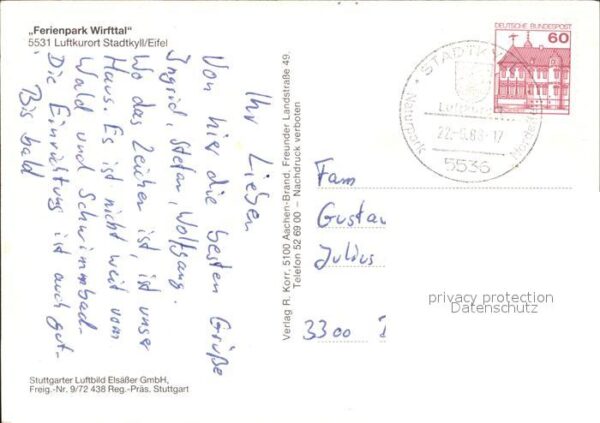 „Ferienpark Wirfttal"
5531 Luftkurort Stadtkyll/Eifel
Ihr Lieben
Von hier die besten Grüße
Ingrid, Stefan, Wolfgang.
Wo das Zeichen ist, ist unser
Haus. Es ist nicht weit vom
Wald und Schwimmbad.
Die Einrichtung ist auch gut.
Bis bald
Stuttgarter Luftbild Elsäßer GmbH,
Freig.-Nr. 9/72 438 Reg.-Präs. Stuttgart
Verlag R. Korr, 5100 Aachen-Brand, Freunder Landstraße 49,
Telefon 52 69 00 – Nachdruck verboten
DEUTSCHE BUNDESPOST
60
STADTKYLL
5536
Fam
Gustav
Julius
3300
privacy protection
Datenschutz